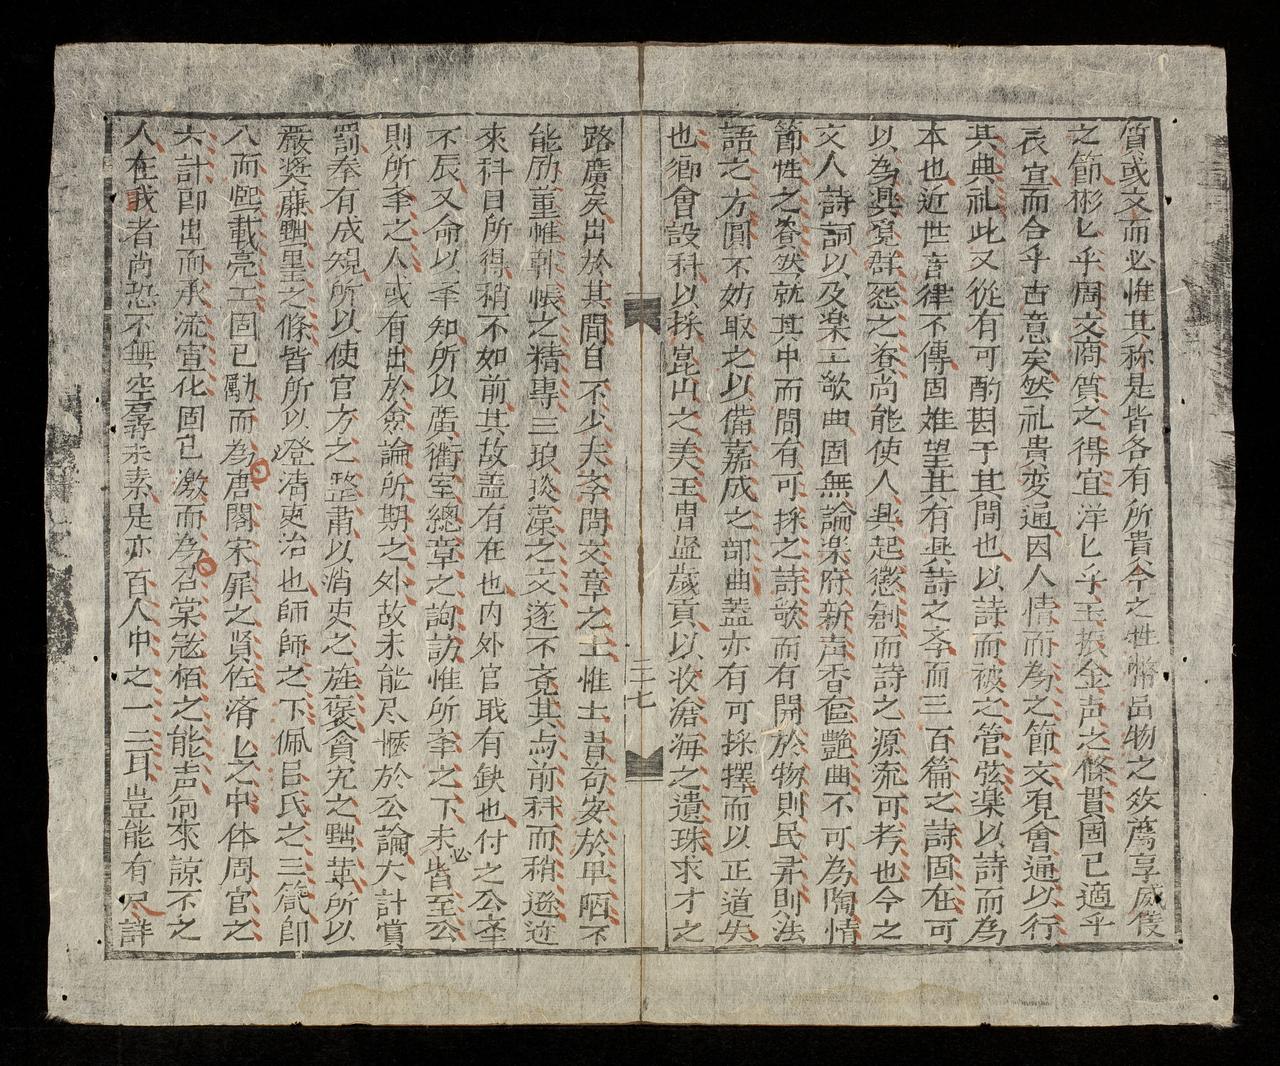 質或文而必惟其称是皆各有所貴今之牲幣品物之效薦享威儀
之節彬匕乎周文商質之得宜洋匕乎玉振金声之條貫固已適乎
衣宜而合乎古意矣然礼貴変通因人情而為之節文覔會通以行
其典礼此又從有可酌甚于其間也以詩而被之管弦楽以詩而為
本也近世音律不傳固难望其有具詩之斈而三百篇之詩固在可
以為具覔群怨之飬尚能使人具起懲創而詩之源流可考也今之
文人詩詞以及楽工歌曲固無論楽府新声香奩艶曲不可為陶情
節性之飬然就其中而間有可採之詩歌而有開於物則民彛則法
語之方圓不妨取之以備嘉成之部曲蓋亦有可採擇而以正道失
也郷會設科以採崑山之美玉冑監歳貢以收滄海之遺珠求才之
二十七
路廣矣出於其間自不少夫斈問文章之士惟士昔苟安於卑陋不
能励董帷軒帳之精專三琅琰藻之文遂不竞其与前科而稍遜近
來科目所得稍不如前其故盖有在也内外官耴有缺也付之公夅
不辰又命以夅知所以廣衢室總章之詢訪惟所夅之下未必皆至公
則所夅之人或有出於僉論所期之外故未能尽愜於公論大計賞
罰奉有成規所以使官方之整肅以消吏之旌褒貪冗之黜革所以
嚴奨廉黜墨之條皆所以澄清吏治也師師之下佩吕氏之三箴即
八而煕載亮工固已勵而為唐閣宋扉之賢佐済匕之中体周官之
六計即出而承流宣化固已激而為召棠冦栢之能声徇來諒不之
人在我者尚恐不無空羣未素是亦百人中之一二耳豈能有尽詳